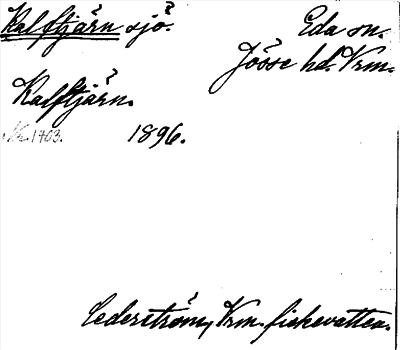 Kalftjärn sjö. Eda sn.
Jösse hd. Vrm.
Kalftjärn.
Nr. 1703. 1896.
Cederström, Vrm. fiskevatten.